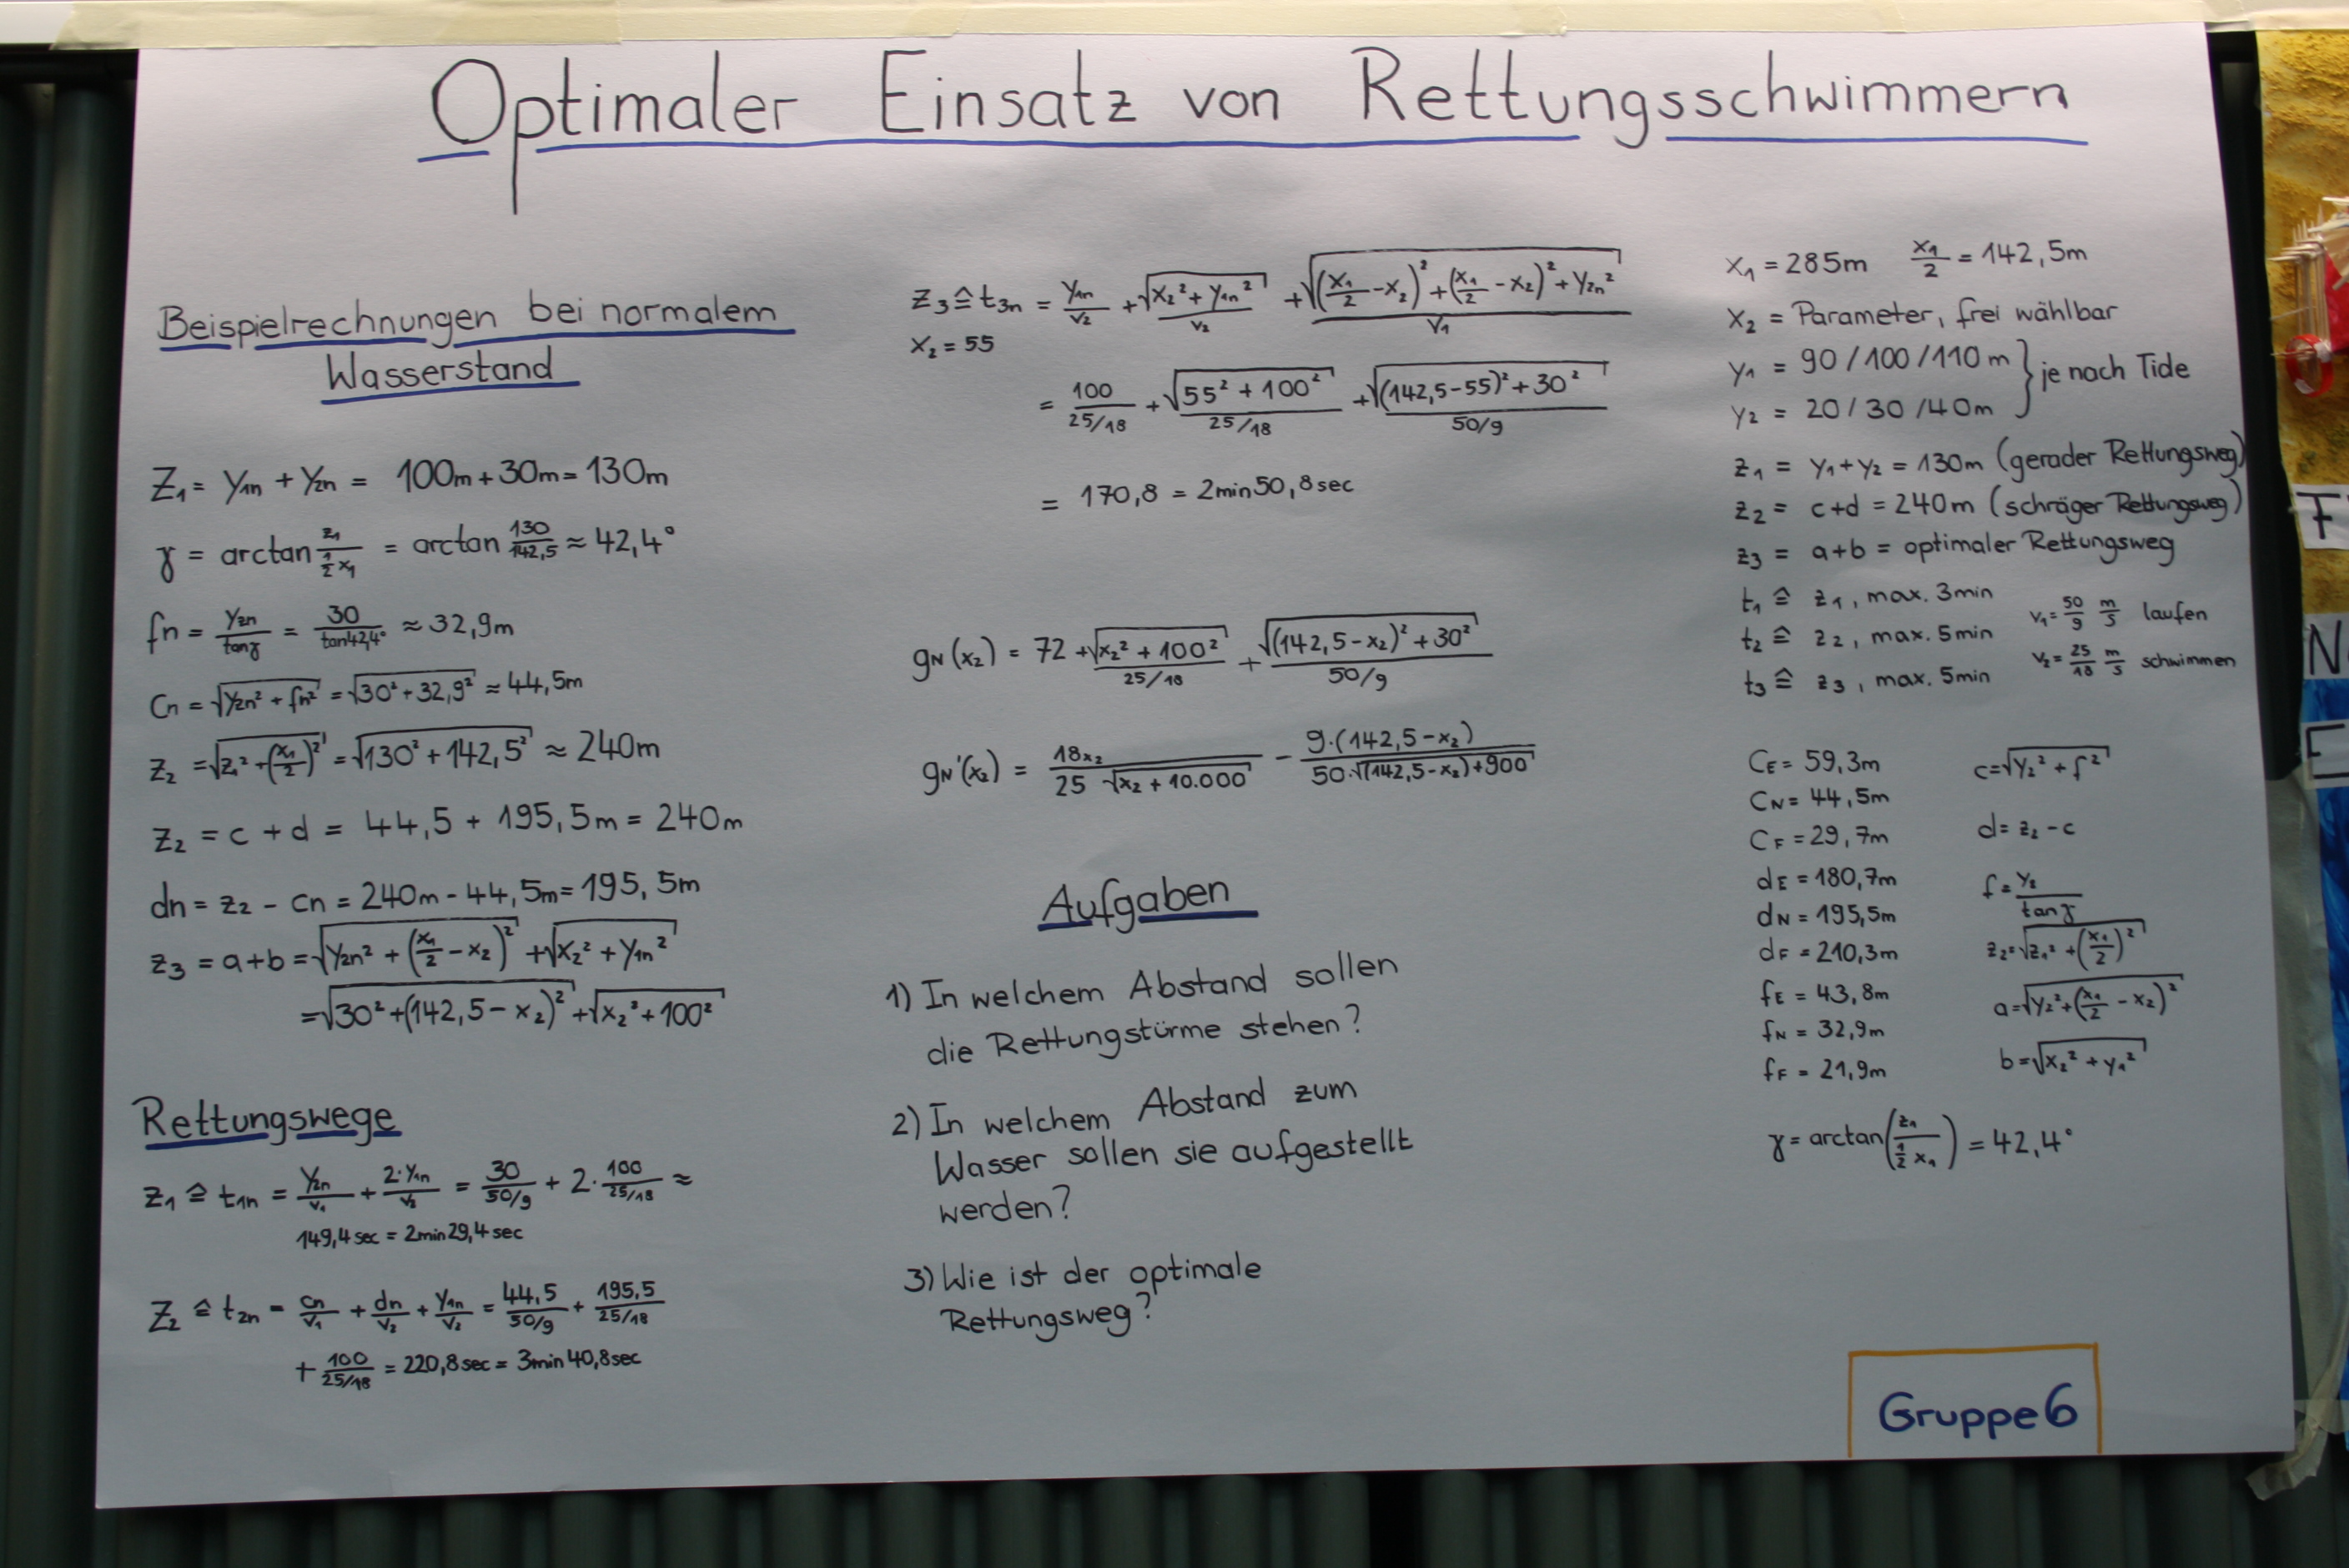 Optimaler Einsatz von Rettungsschwimmern
Beispielrechnungen bei normalem
Wasserstand
Z₁ = y₁ₙ + y₂ₙ = 100m + 30m = 130m
γ = arctan z₁/(½ x₁) = arctan 130/142,5 ≈ 42,4°
fn = y₂ₙ/tanγ = 30/tan42,4° ≈ 32,9m
Cn = √(y₂ₙ² + fn²) = √(30² + 32,9²) ≈ 44,5m
Z₂ = √(z₁² + (x₁/2)²) = √(130² + 142,5²) ≈ 240m
Z₂ = c + d = 44,5 + 195,5m = 240m
dn = z₂ - cn = 240m - 44,5m = 195,5m
z₃ = a+b = √(y₂ₙ² + (x₁/2 - x₂)²) + √(x₂² + y₁ₙ²)
= √(30² + (142,5 - x₂)²) + √(x₂² + 100²)
Rettungswege
z₁ ≙ t₁ₙ = y₂ₙ/v₁ + 2·y₁ₙ/v₂ = 30/(50/9) + 2·100/(25/18) ≈
149,4 sec = 2min 29,4 sec
Z₂ ≙ t₂ₙ = cn/v₁ + dn/v₂ + y₁ₙ/v₂ = 44,5/(50/9) + 195,5/(25/18)
+ 100/(25/18) = 220,8 sec = 3min 40,8 sec
Z₃ ≙ t₃ₙ = y₁ₙ/v₂ + √(x₂² + y₁ₙ²)/v₂ + √((x₁/2 - x₂)² + (x₁/2 - x₂)² + y₂ₙ²)/v₁
x₂ = 55
= 100/(25/18) + √(55² + 100²)/(25/18) + √((142,5 - 55)² + 30²)/(50/9)
= 170,8 = 2min 50,8 sec
gN(x₂) = 72 + √(x₂² + 100²)/(25/18) + √((142,5 - x₂)² + 30²)/(50/9)
gN'(x₂) = 18x₂/(25 √(x₂ + 10.000)) - 9·(142,5 - x₂)/(50·√((142,5 - x₂) + 900))
Aufgaben
1) In welchem Abstand sollen
die Rettungstürme stehen?
2) In welchem Abstand zum
Wasser sollen sie aufgestellt
werden?
3) Wie ist der optimale
Rettungsweg?
x₁ = 285m x₁/2 = 142,5m
x₂ = Parameter, frei wählbar
y₁ = 90 / 100 / 110 m } je nach Tide
y₂ = 20 / 30 / 40m
z₁ = y₁ + y₂ = 130m (gerader Rettungsweg)
z₂ = c+d = 240m (schräger Rettungsweg)
z₃ = a+b = optimaler Rettungsweg
t₁ ≙ z₁, max. 3min
t₂ ≙ z₂, max. 5min
t₃ ≙ z₃, max. 5min
v₁ = 50/9 m/s laufen
v₂ = 25/18 m/s schwimmen
CE = 59,3m
CN = 44,5m
CF = 29,7m
dE = 180,7m
dN = 195,5m
dF = 210,3m
fE = 43,8m
fN = 32,9m
fF = 21,9m
c = √(y₂² + f²)
d = z₂ - c
f = y₂/tanγ
z₂ = √(z₁² + (x₁/2)²)
a = √(y₂² + (x₁/2 - x₂)²)
b = √(x₂² + y₁²)
γ = arctan(z₁/(½ x₁)) = 42,4°
Gruppe 6